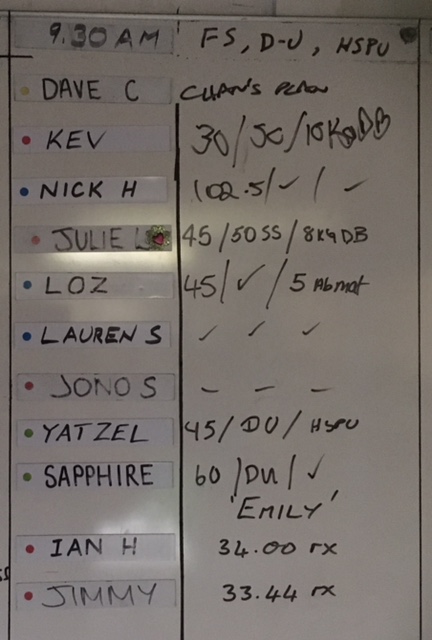 9.30 AM FS, D-U, HSPU
DAVE C CHAN'S PLAN
KEV 30/50/10KgDB
NICK H 102.5/✓/✓
JULIE L 45/50SS/8KgDB
LOZ 45/✓/5 Abmat
LAUREN S ✓ ✓ ✓
JONO S – – –
YATZEL 45/DU/HSPU
SAPPHIRE 60/DU/✓
'EMILY'
IAN H 34.00 rx
JIMMY 33.44 rx